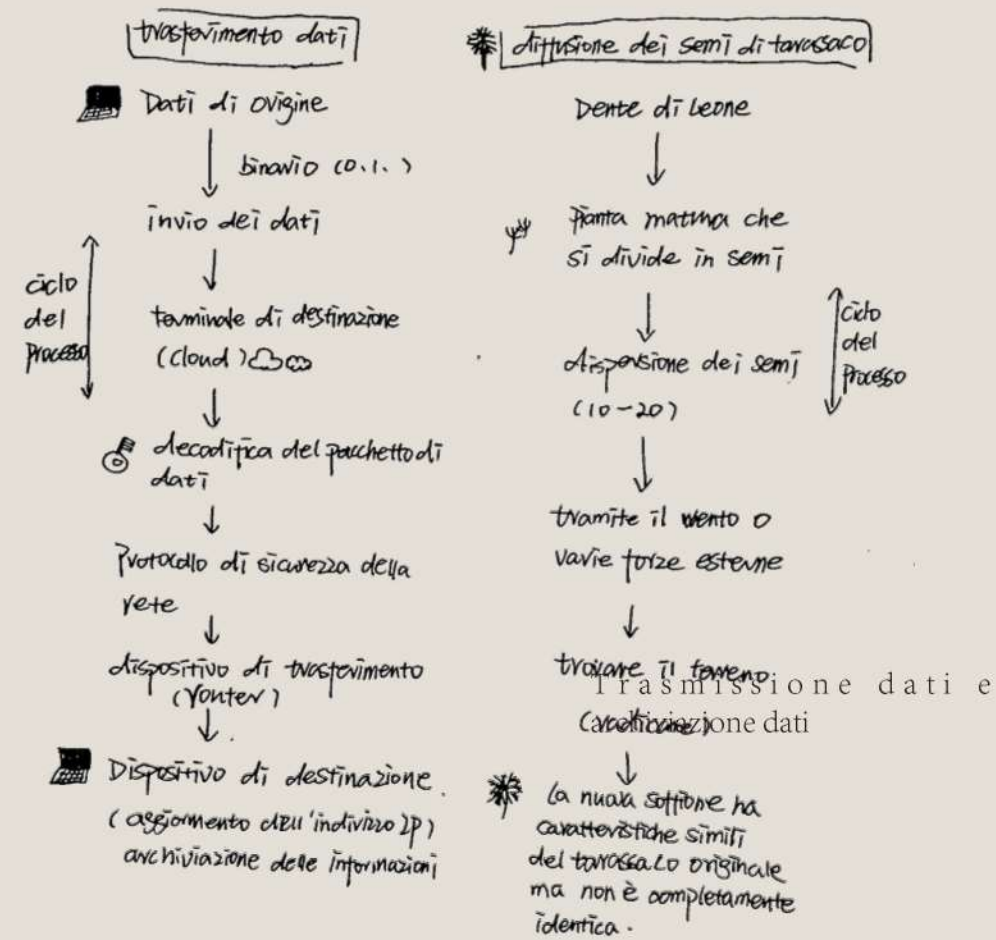 trasferimento dati
Dati di origine
binario (0.1.)
invio dei dati
ciclo
del
processo
terminale di destinazione
(cloud)
decodifica del pacchetto di
dati
Protocollo di sicurezza della
rete
dispositivo di trasferimento
(router)
Dispositivo di destinazione
(aggiornamento dell'indirizzo IP)
archiviazione delle informazioni
diffusione dei semi di tarassaco
Dente di Leone
Pianta matura che
si divide in semi
dispersione dei semi
(10-20)
ciclo
del
Processo
tramite il vento o
varie forze esterne
trovare il terreno
(radicare)
La nuova soffione ha
caratteristiche simili
del tarassaco originale
ma non è completamente
identica.
Trasmissione dati e
archiviazione dati